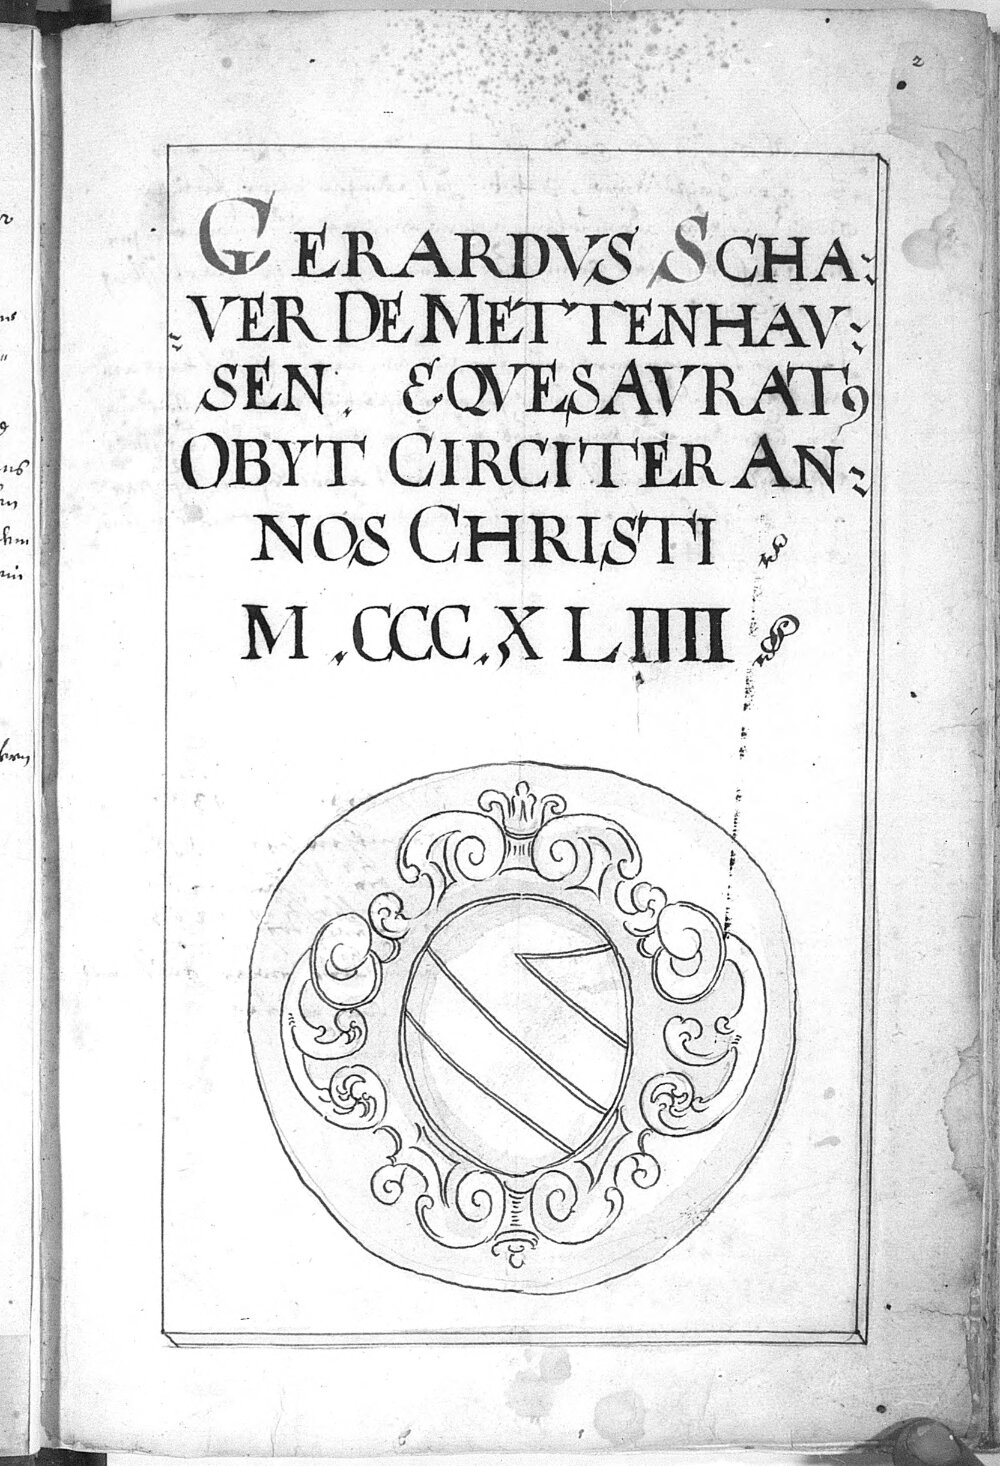 2
GERARDVS SCHA⸗
⸗VER DE METTENHAV⸗
SEN. EQVES AVRATꝰ
OBYT CIRCITER AN⸗
NOS CHRISTI
M.CCC.XLIIII